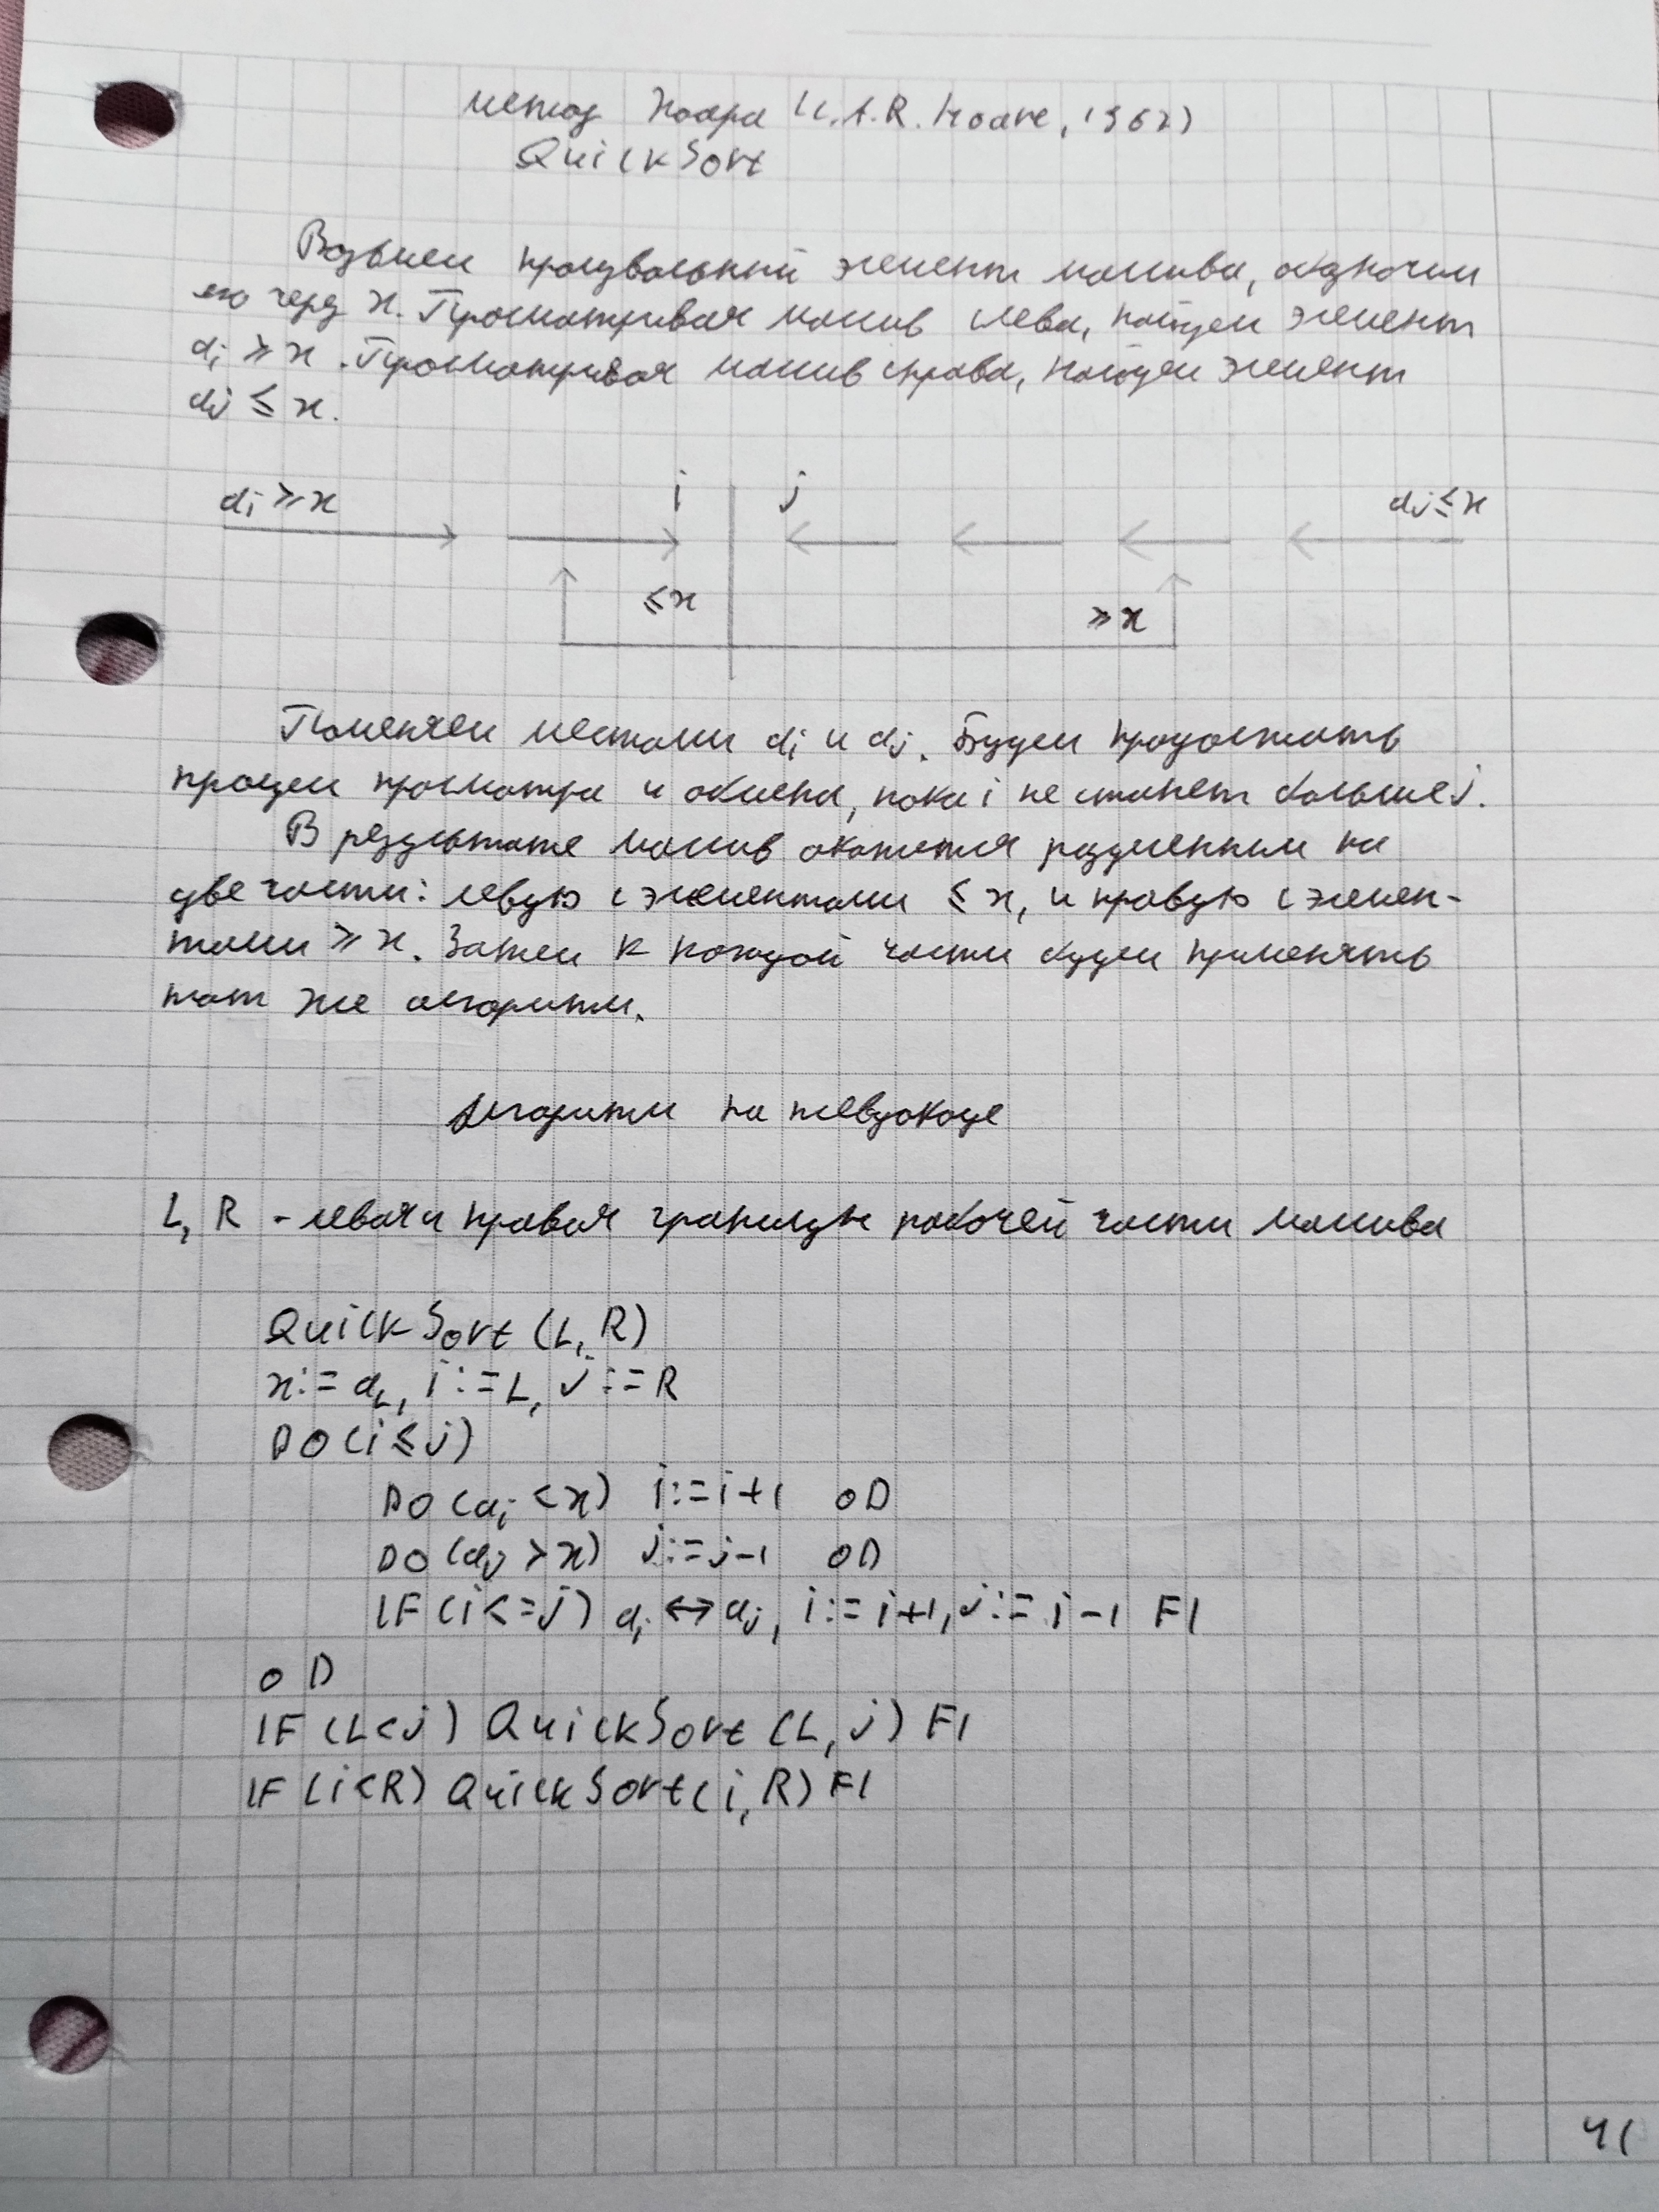 метод Хоара (C.A.R. Hoare, 1962)
QuickSort
Возьмем произвольный элемент массива, обозначим
его через x. Просматривая массив слева, найдем элемент
ai ≥ x. Просматривая массив справа, найдем элемент
aj ≤ x.
ai ≥ x i j aj ≤ x
≤ x ≥ x
Поменяем местами ai и aj. Будем продолжать
процесс просмотра и обмена, пока i не станет больше j.
В результате массив окажется разделенным на
две части: левую с элементами ≤ x, и правую с элемен-
тами ≥ x. Затем к каждой части будем применять
тот же алгоритм.
Алгоритм на псевдокоде
L, R - левая и правая границы рабочей части массива
QuickSort (L, R)
x := aL, i := L, j := R
DO (i ≤ j)
DO (ai < x) i := i+1 OD
DO (aj > x) j := j-1 OD
IF (i <= j) ai ↔ aj, i := i+1, j := j-1 FI
OD
IF (L < j) QuickSort (L, j) FI
IF (i < R) QuickSort (i, R) FI
41